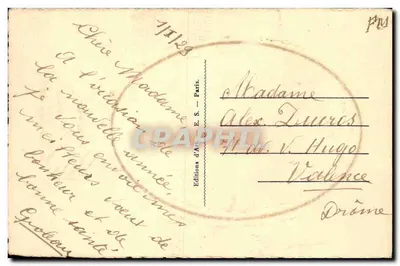 1/I/23
Chère Madame
A l'occasion de
la nouvelle année,
je vous envoie mes
meilleurs vœux de
bonheur et de
bonne santé.
Editions d'Art E. S. - Paris.
CPAPHIL
Madame
Alex.
de V. Hugo
Valence
Drôme
PM